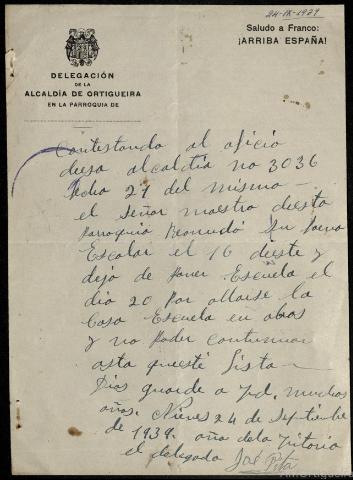 24-IX-1939
Saludo a Franco:
¡ARRIBA ESPAÑA!
DELEGACIÓN
DE LA
ALCALDÍA DE ORTIGUEIRA
EN LA PARROQUIA DE
Contestando al oficio
desa alcaldia no 3036
fecha 21 del mismo
el Señor maestro desta
Parroquia Reanudó su tarea
Escolar el 16 deste y
dejó de Poner Escuela el
dia 20 Por allarse la
Casa Escuela en obras
y no Poder continuar
asta questé lista
Dios guarde a Vd. muchos
años. Nieves 24 de Septiembre
de 1939. año dela Vitoria
el delegado José Pita